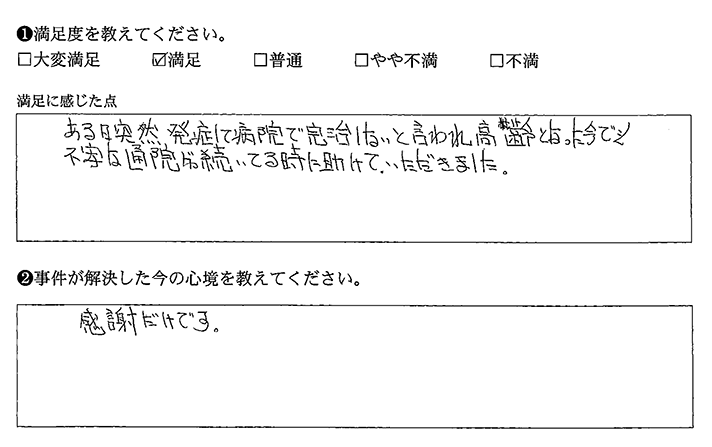 ❶満足度を教えてください。
□大変満足 ☑満足 □普通 □やや不満 □不満
満足に感じた点
ある日突然発症して病院で完治しないと言われ高齢となった今でも
不安な通院が続いてる時に助けて、いただきました。
❷事件が解決した今の心境を教えてください。
感謝だけです。